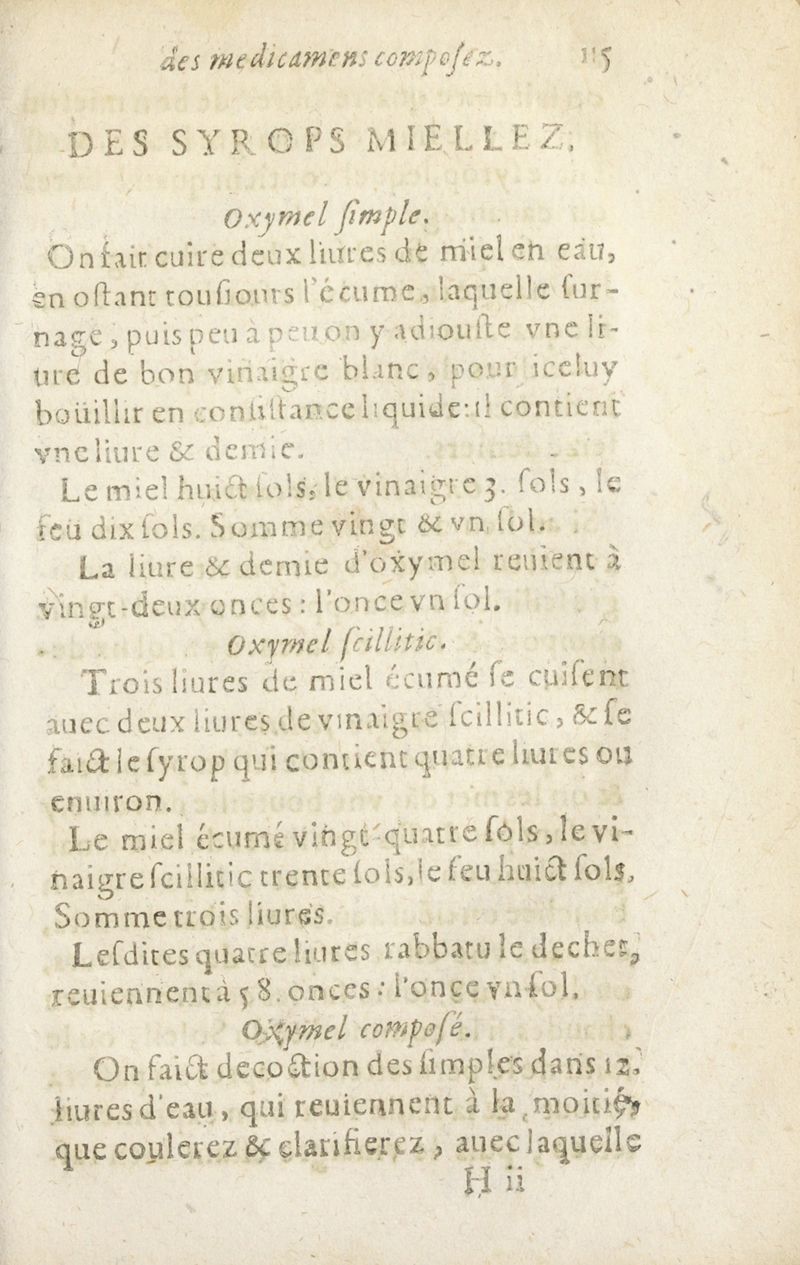 des medicamens composez. 115
DES SYROPS MIELLEZ,
Oxymel ſimple.
On fait cuire deux liures de miel en eau,
en oſtant touſiours l'écume, laquelle ſur-
nage, puis peu à peu on y adiouſte vne li-
ure de bon vinaigre blanc, pour iceluy
boüillir en conſiſtance liquide: il contient
vne liure & demie.
Le miel huict ſols, le vinaigre 3. ſols, le
feu dix ſols. Somme vingt & vn ſol.
La liure & demie d'oxymel reuient à
vingt-deux onces : l'once vn ſol.
Oxymel ſcillitic.
Trois liures de miel écumé ſe cuiſent
auec deux liures de vinaigre ſcillitic, & ſe
faict le ſyrop qui contient quatre liures ou
enuiron.
Le miel écumé vingt-quatre ſols, le vi-
naigre ſcillitic trente ſols, le feu huict ſols,
Somme trois liures.
Leſdites quatre liures rabbatu le dechet,
reuiennent à 58. onces : l'once vn ſol,
Oxymel compoſé.
On faict decoction des ſimples dans 12.
liures d'eau, qui reuiennent à la moitié,
que coulerez & clarifierez, auec laquelle
H ii